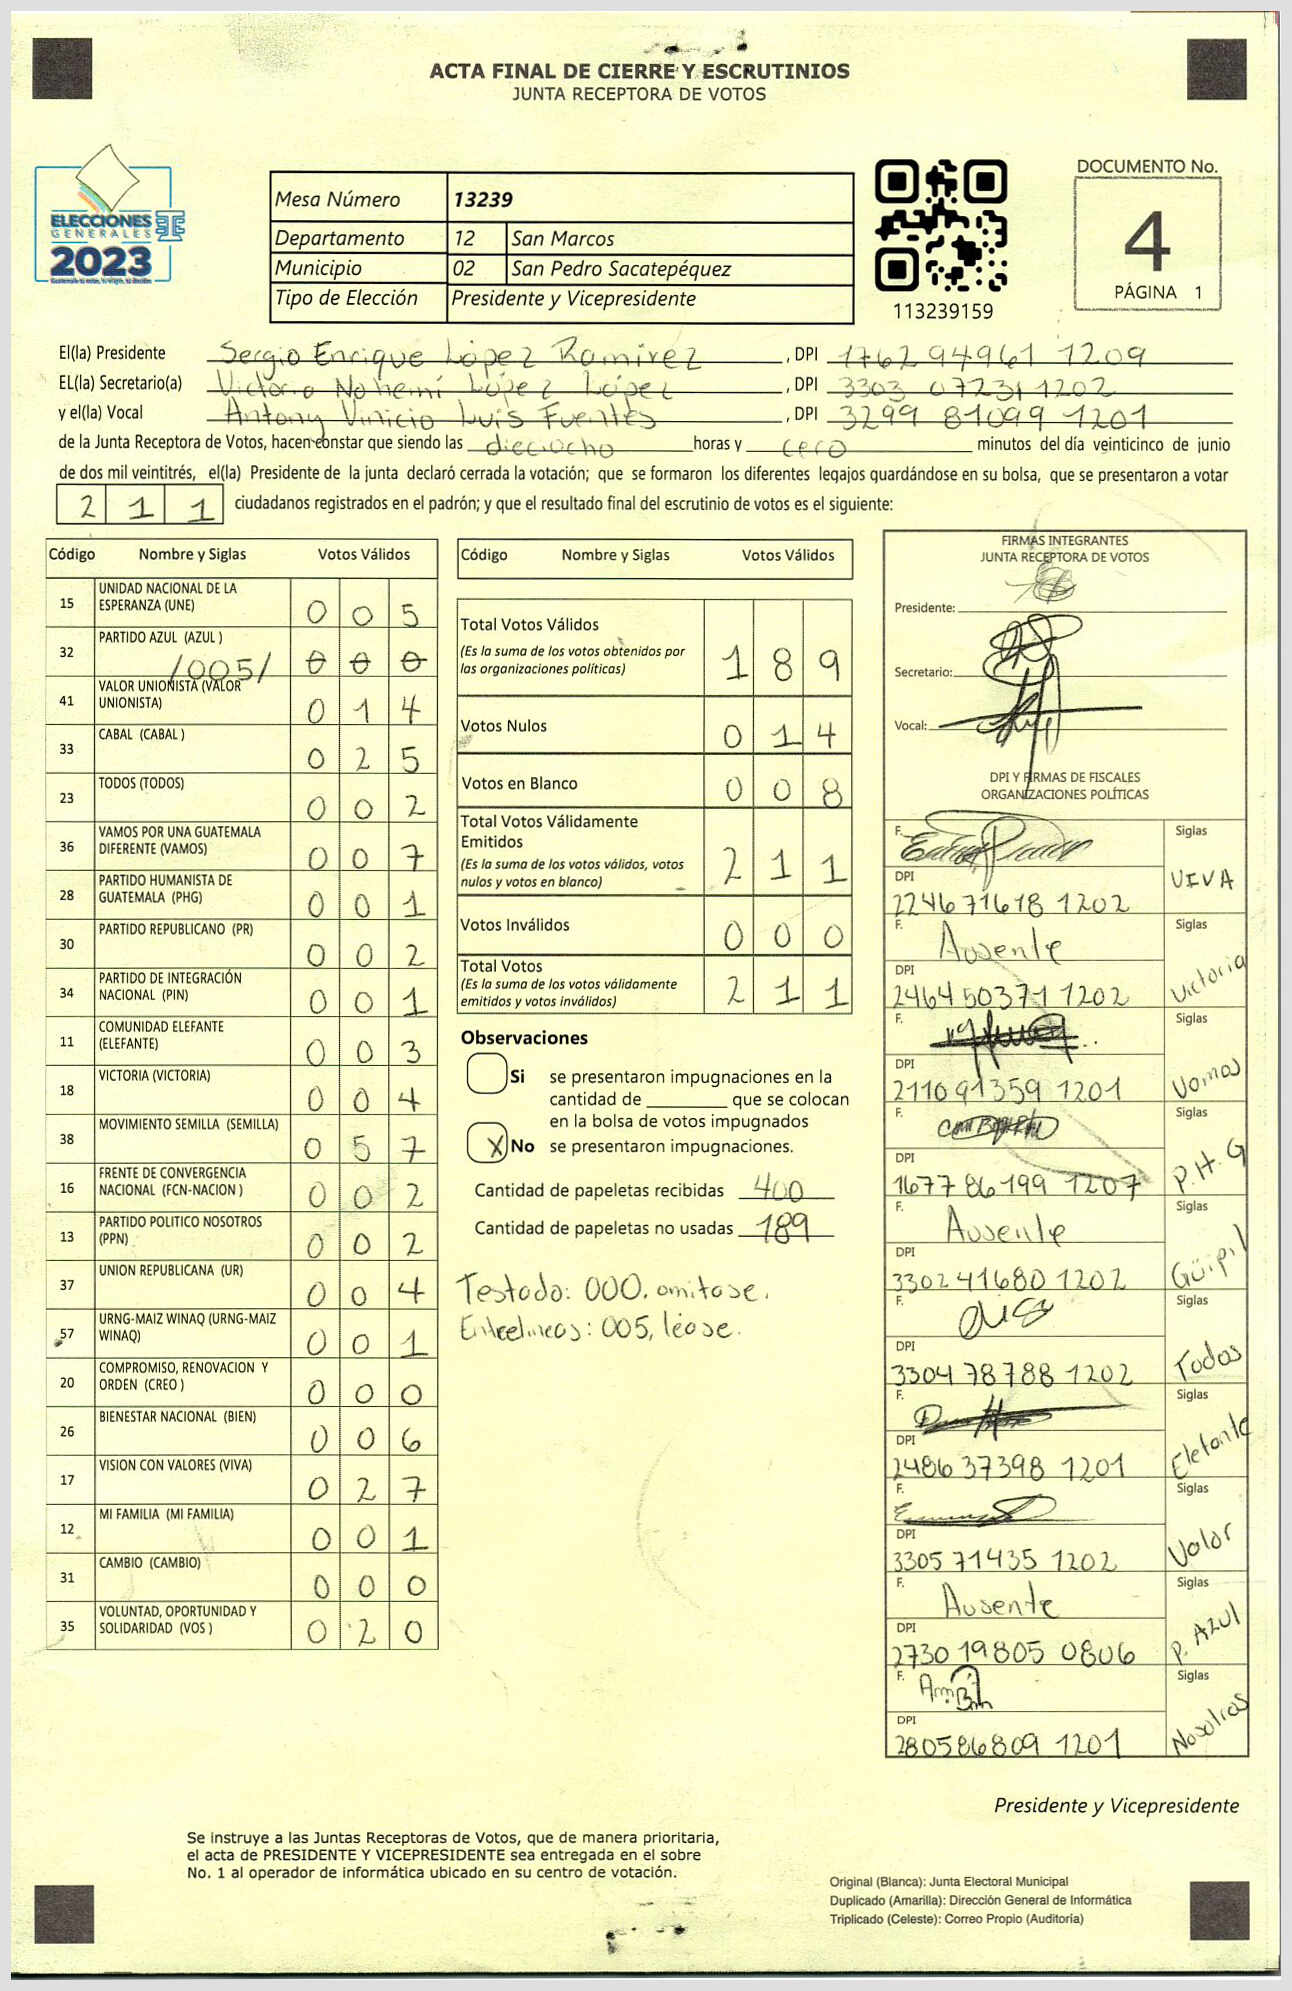 ACTA FINAL DE CIERRE Y ESCRUTINIOS
JUNTA RECEPTORA DE VOTOS
ELECCIONES
GENERALES
2023
Mesa Número 13239
Departamento 12 San Marcos
Municipio 02 San Pedro Sacatepéquez
Tipo de Elección Presidente y Vicepresidente
113239159
DOCUMENTO No.
4
PÁGINA 1
El(la) Presidente Sergio Enrique López Ramirez, DPI 1762 94961 1209
EL(la) Secretario(a) Victoria Nohemí López López, DPI 3303 07231 1202
y el(la) Vocal Antony Vinicio Luis Fuentes, DPI 3299 81099 1201
de la Junta Receptora de Votos, hacen constar que siendo las dieciocho horas y cero minutos del día veinticinco de junio
de dos mil veintitrés, el(la) Presidente de la junta declaró cerrada la votación; que se formaron los diferentes legajos guardándose en su bolsa, que se presentaron a votar
2 1 1 ciudadanos registrados en el padrón; y que el resultado final del escrutinio de votos es el siguiente:
Código Nombre y Siglas Votos Válidos
15 UNIDAD NACIONAL DE LA
ESPERANZA (UNE) 0 0 5
32 PARTIDO AZUL (AZUL )
/005/ 0 0 0
41 VALOR UNIONISTA (VALOR
UNIONISTA) 0 1 4
33 CABAL (CABAL ) 0 2 5
23 TODOS (TODOS) 0 0 2
36 VAMOS POR UNA GUATEMALA
DIFERENTE (VAMOS) 0 0 7
28 PARTIDO HUMANISTA DE
GUATEMALA (PHG) 0 0 1
30 PARTIDO REPUBLICANO (PR) 0 0 2
34 PARTIDO DE INTEGRACIÓN
NACIONAL (PIN) 0 0 1
11 COMUNIDAD ELEFANTE
(ELEFANTE) 0 0 3
18 VICTORIA (VICTORIA) 0 0 4
38 MOVIMIENTO SEMILLA (SEMILLA) 0 5 7
16 FRENTE DE CONVERGENCIA
NACIONAL (FCN-NACION ) 0 0 2
13 PARTIDO POLITICO NOSOTROS
(PPN) 0 0 2
37 UNION REPUBLICANA (UR) 0 0 4
57 URNG-MAIZ WINAQ (URNG-MAIZ
WINAQ) 0 0 1
20 COMPROMISO, RENOVACION Y
ORDEN (CREO ) 0 0 0
26 BIENESTAR NACIONAL (BIEN) 0 0 6
17 VISION CON VALORES (VIVA) 0 2 7
12 MI FAMILIA (MI FAMILIA) 0 0 1
31 CAMBIO (CAMBIO) 0 0 0
35 VOLUNTAD, OPORTUNIDAD Y
SOLIDARIDAD (VOS ) 0 2 0
Código Nombre y Siglas Votos Válidos
Total Votos Válidos
(Es la suma de los votos obtenidos por
las organizaciones políticas) 1 8 9
Votos Nulos 0 1 4
Votos en Blanco 0 0 8
Total Votos Válidamente
Emitidos
(Es la suma de los votos válidos, votos
nulos y votos en blanco) 2 1 1
Votos Inválidos 0 0 0
Total Votos
(Es la suma de los votos válidamente
emitidos y votos inválidos) 2 1 1
Observaciones
Si se presentaron impugnaciones en la
cantidad de ________ que se colocan
en la bolsa de votos impugnados
X No se presentaron impugnaciones.
Cantidad de papeletas recibidas 400
Cantidad de papeletas no usadas 189
Testado: 000. omitase.
Entrelineas: 005, léase.
FIRMAS INTEGRANTES
JUNTA RECEPTORA DE VOTOS
Presidente:
Secretario:
Vocal:
DPI Y FIRMAS DE FISCALES
ORGANIZACIONES POLÍTICAS
F. Siglas
DPI VIVA
2246 71618 1202
F. Ausente Siglas
DPI Victoria
2464 50371 1202
F. Siglas
DPI Vamos
2110 91359 1201
F. Siglas
DPI P.H.G
1677 86199 1207
F. Ausente Siglas
DPI Güipil
3302 41680 1202
F. Siglas
DPI Todos
3304 78788 1202
F. Siglas
DPI Elefante
2486 37398 1201
F. Siglas
DPI Valor
3305 71435 1202
F. Ausente Siglas
DPI P. AZUL
2730 19805 0806
F. Siglas
DPI Nosotros
2805 86809 1201
Presidente y Vicepresidente
Se instruye a las Juntas Receptoras de Votos, que de manera prioritaria,
el acta de PRESIDENTE Y VICEPRESIDENTE sea entregada en el sobre
No. 1 al operador de informática ubicado en su centro de votación.
Original (Blanca): Junta Electoral Municipal
Duplicado (Amarilla): Dirección General de Informática
Triplicado (Celeste): Correo Propio (Auditoría)